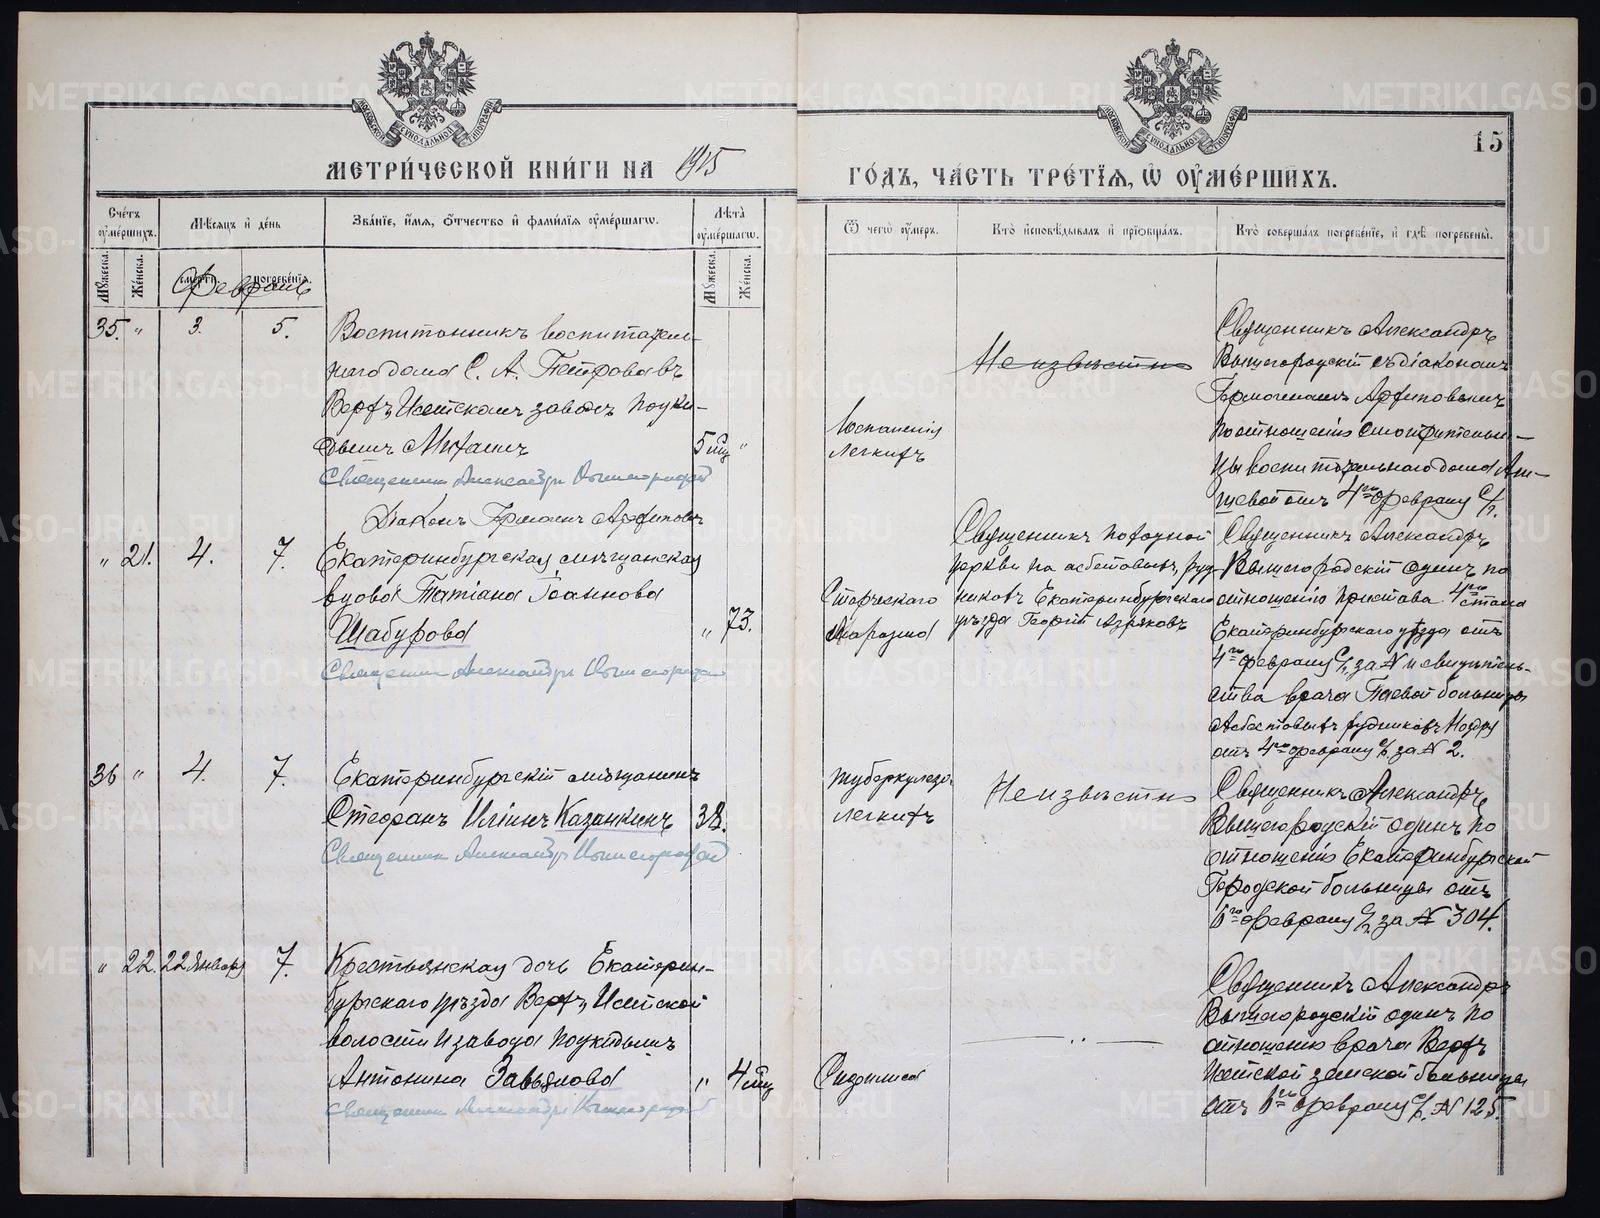 МЕТРИ́ЧЕСКОЙ КНИ́ГИ НА 1915
ГО́ДЪ, ЧА́СТЬ ТРЕ́ТІѦ, Ѡ ОУМЕ́РШИХЪ.
15
Сче́тъ оуме́ршихъ.
Мѣсяцъ и де́нь
Зва́нїе, и́мѧ, ѻ́тчество и фами́лїѧ оуме́ршагѡ.
Лѣта̀ оуме́ршагѡ.
Ѿ чегѡ̀ оу́меръ.
Кто̀ и҆сповѣ́дывалъ и҆ прїѡбща́лъ.
Кто̀ соверша́лъ погребе́нїе, и҆ гдѣ̀ погребены̀.
Му́жеска.
Же́нска.
смерти
погребе́нїѧ.
Му́жеска.
Же́нска.
Февраль
35. " 3. 5.
Воспитанникъ воспитатель-
наго дома С. А. Петрова въ
Верхъ Исетскомъ заводѣ поуки-
дышъ Михаилъ
5 мц "
Священник Александр Вышегородский
Діаконъ Германъ Архиповъ
Воспаленія
легкихъ
Неизвѣстно
Священникъ Александръ
Вышегородскій съ діакономъ
Германомъ Архиповымъ
по отношенію смотрительни-
цы воспитательнаго дома
отъ 4го февраля с/г.
" 21. 4. 7.
Екатеринбургская мѣщанская
вдова Татіана Іоаннова
Шабурова
" 73.
Священник Александр Вышегородский
Старческаго
маразма
Священникъ походной
церкви на асбестовыхъ руд-
никахъ Екатеринбургскаго
уѣзда Георгій
Священникъ Александръ
Вышегородскій одинъ по
отношенію пристава 4го стана
Екатеринбургскаго уѣзда отъ
4го февраля с/г за № и свидѣтель-
ства врача больницы
Асбестовыхъ рудниковъ
отъ 4го февраля с/г за № 2.
36 " 4. 7.
Екатеринбургскій мѣщанинъ
Стефанъ Иліинъ Казанкинъ
38.
Священник Александр Вышегородский
Туберкулеза
легкихъ
Неизвѣстно
Священникъ Александръ
Вышегородскій одинъ по
отношенію Екатеринбургской
Городской больницы отъ
6го февраля с/г за № 304.
" 22. 22 января 7.
Крестьянская дочь Екатерин-
бургскаго уѣзда Верхъ Исетской
волости и завода поукидышъ
Антонина Завьялова
" 4 мц
Священник Александр Вышегородский
Сифилиса
— " —
Священникъ Александръ
Вышегородскій одинъ по
отношенію врача Верхъ
Исетской земской больницы
отъ 6го февраля с/г. № 125.
METRIKI.GASO-URAL.RU